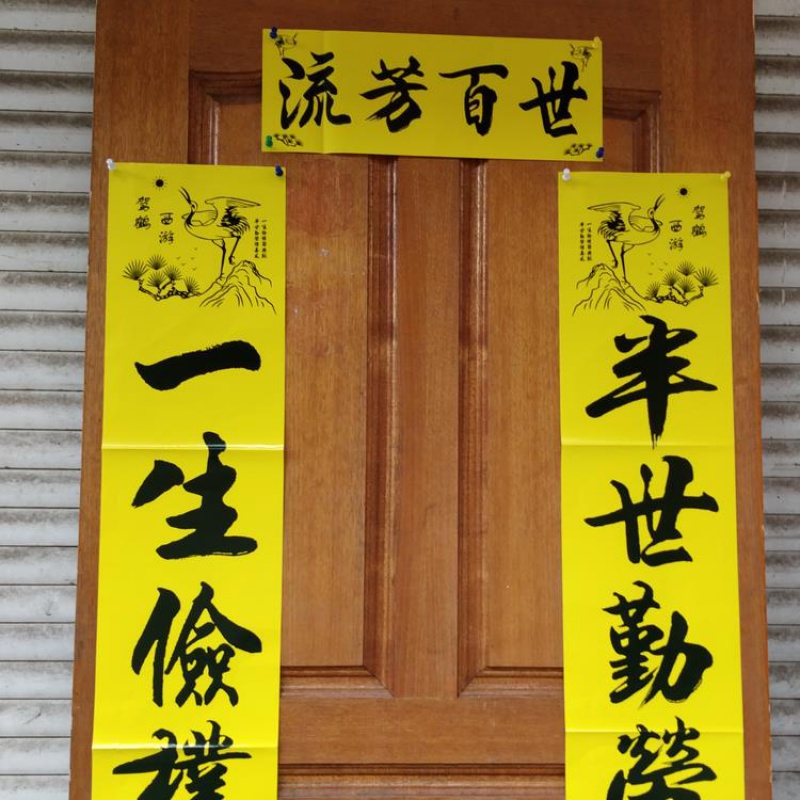 流芳百世
駕鶴
西游
一生儉樸
駕鶴
西游
半世勤勞